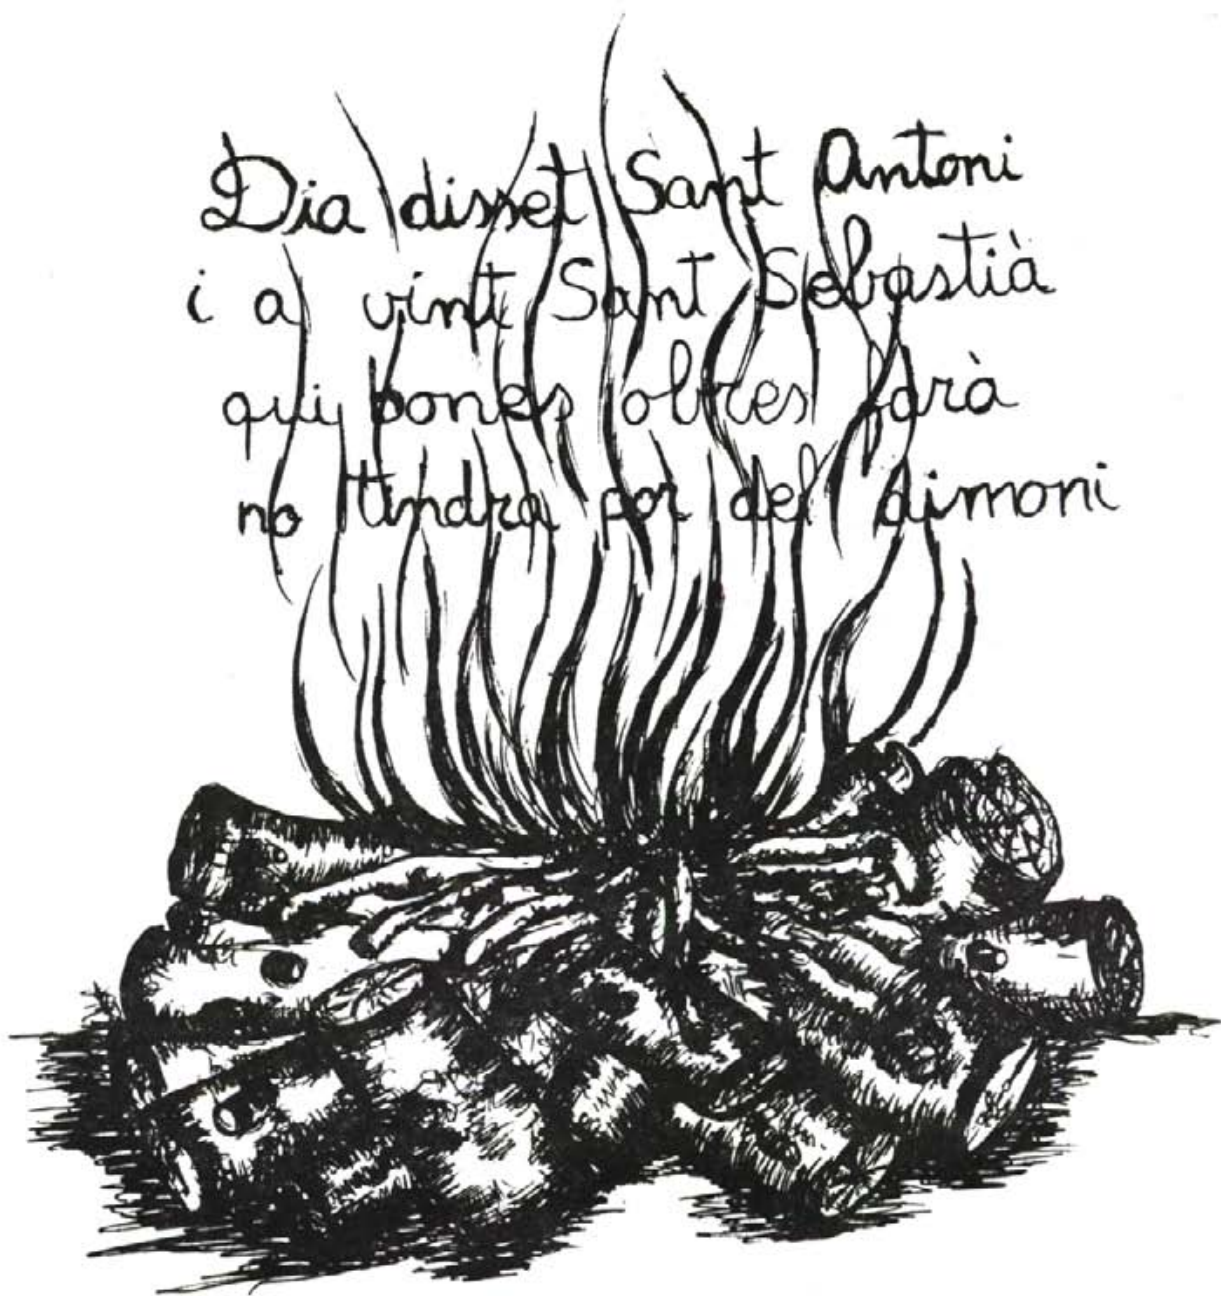 Dia disset Sant Antoni
i a vint Sant Sebastià
qui bones obres farà
no tindra por del dimoni